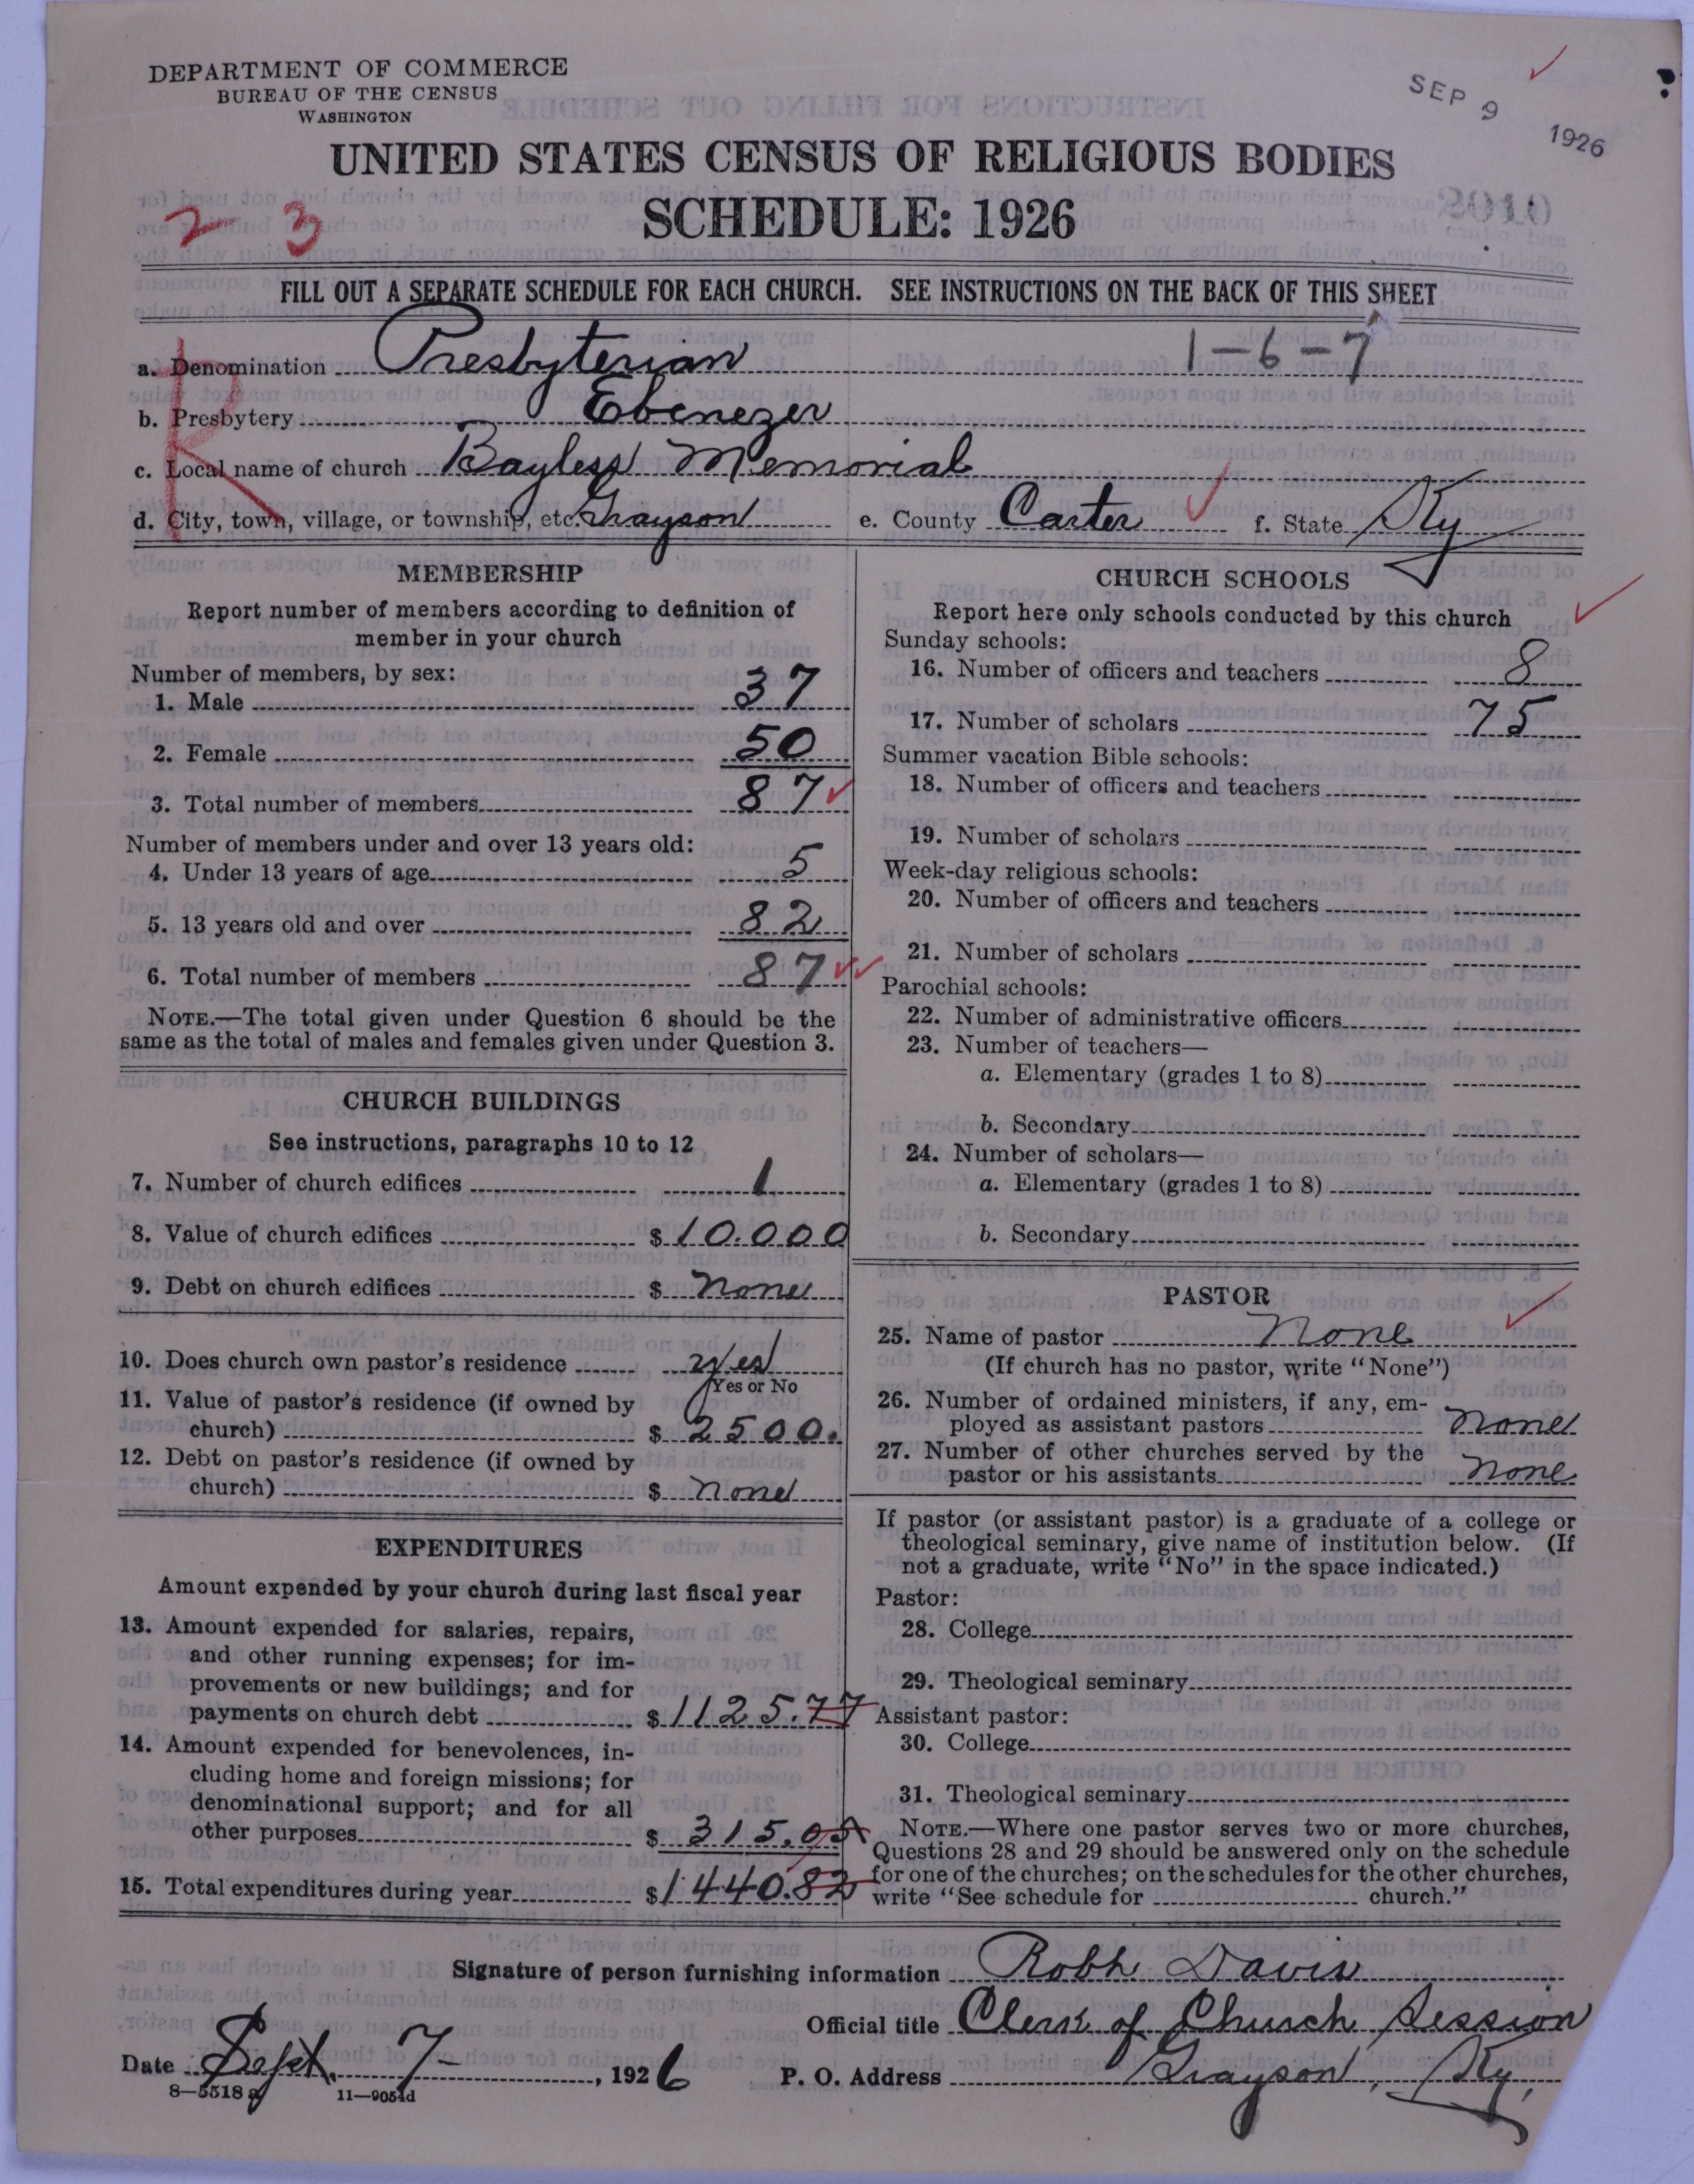 DEPARTMENT OF COMMERCE
BUREAU OF THE CENSUS
WASHINGTON
SEP 9 1926
UNITED STATES CENSUS OF RELIGIOUS BODIES
SCHEDULE: 1926
2 3
2010
FILL OUT A SEPARATE SCHEDULE FOR EACH CHURCH. SEE INSTRUCTIONS ON THE BACK OF THIS SHEET
R
1-6-7
a. Denomination Presbyterian
b. Presbytery Ebenezer
c. Local name of church Bayless Memorial
d. City, town, village, or township, etc. Grayson e. County Carter f. State Ky
MEMBERSHIP
Report number of members according to definition of
member in your church
Number of members, by sex:
1. Male 37
2. Female 50
3. Total number of members 87
Number of members under and over 13 years old:
4. Under 13 years of age 5
5. 13 years old and over 82
6. Total number of members 87
NOTE.—The total given under Question 6 should be the
same as the total of males and females given under Question 3.
CHURCH BUILDINGS
See instructions, paragraphs 10 to 12
7. Number of church edifices 1
8. Value of church edifices $ 10.000
9. Debt on church edifices $ none
10. Does church own pastor's residence yes
Yes or No
11. Value of pastor's residence (if owned by
church) $ 2500.
12. Debt on pastor's residence (if owned by
church) $ none
EXPENDITURES
Amount expended by your church during last fiscal year
13. Amount expended for salaries, repairs,
and other running expenses; for im-
provements or new buildings; and for
payments on church debt $ 1125.77
14. Amount expended for benevolences, in-
cluding home and foreign missions; for
denominational support; and for all
other purposes $ 315.05
15. Total expenditures during year $ 1440.82
CHURCH SCHOOLS
Report here only schools conducted by this church
Sunday schools:
16. Number of officers and teachers 8
17. Number of scholars 75
Summer vacation Bible schools:
18. Number of officers and teachers
19. Number of scholars
Week-day religious schools:
20. Number of officers and teachers
21. Number of scholars
Parochial schools:
22. Number of administrative officers
23. Number of teachers—
a. Elementary (grades 1 to 8)
b. Secondary
24. Number of scholars—
a. Elementary (grades 1 to 8)
b. Secondary
PASTOR
25. Name of pastor None
(If church has no pastor, write "None")
26. Number of ordained ministers, if any, em-
ployed as assistant pastors none
27. Number of other churches served by the
pastor or his assistants none
If pastor (or assistant pastor) is a graduate of a college or
theological seminary, give name of institution below. (If
not a graduate, write "No" in the space indicated.)
Pastor:
28. College
29. Theological seminary
Assistant pastor:
30. College
31. Theological seminary
NOTE.—Where one pastor serves two or more churches,
Questions 28 and 29 should be answered only on the schedule
for one of the churches; on the schedules for the other churches,
write "See schedule for church."
Signature of person furnishing information Robh Davis
Official title Clerk of Church Session
Date Sept. 7-, 1926 P. O. Address Grayson, Ky,
8—5518 a 11—9054d